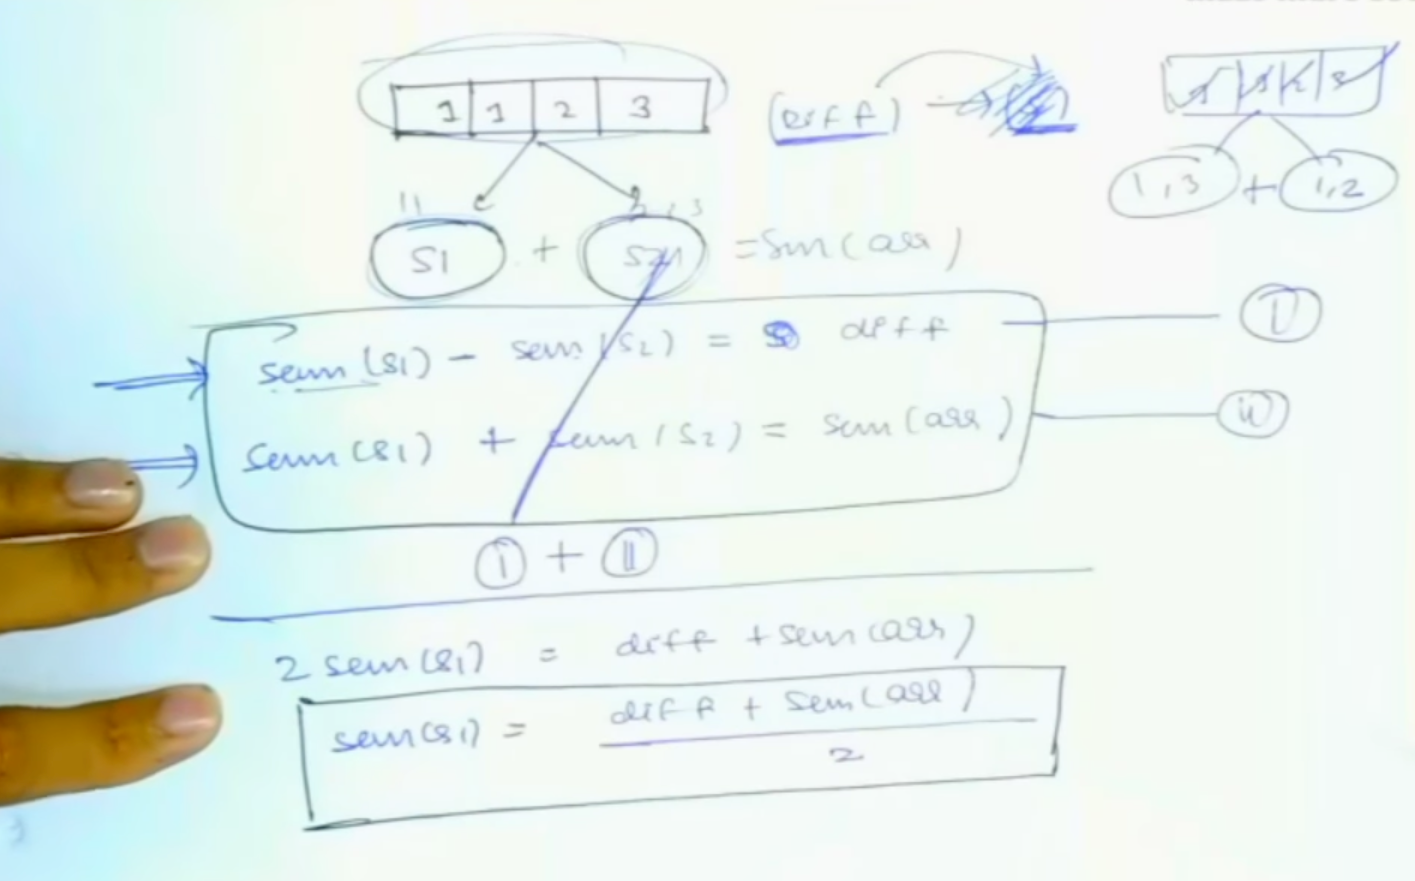 1 1 2 3
(Diff)
1,3 + 1,2
11
2,3
S1 + S2 = Sum(arr)
sum(s1) - sum(s2) = diff
I
sum(s1) + sum(s2) = sum(arr)
II
I + II
2 sum(s1) = diff + sum(arr)
sum(s1) = diff + sum(arr)
2